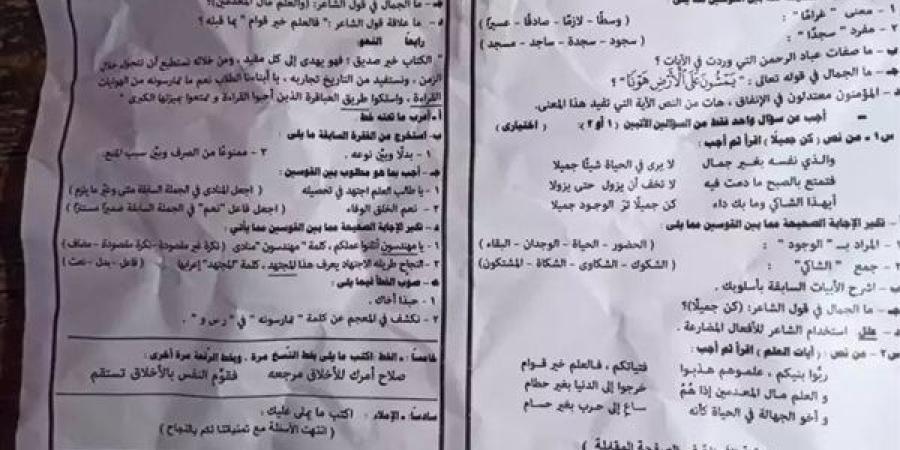 ١ - معنى "غرامًا" : ( وسطًا - لازمًا - صادقًا - عسيرًا )
٢ - مفرد "سجدًا" : ( سجود - سجدة - ساجد - مسجد )
ب - ما صفات عباد الرحمن التي وردت في الآيات ؟
جـ - ما الجمال في قوله تعالى : " يَمْشُونَ عَلَى الْأَرْضِ هَوْنًا " ؟
د - المؤمنون معتدلون في الإنفاق ، هات من النص الآية التي تفيد هذا المعنى.
أجب عن سؤال واحد فقط من السؤالين الآتيين ( ١ أو ٢ ) : ( اختيارى )
س١ - من نص ( كن جميلًا ) اقرأ ثم أجب :
والذي نفسه بغير جمال لا يرى في الحياة شيئًا جميلا
فتمتع بالصبح ما دمت فيه لا تخف أن يزول حتى يزولا
أيهـذا الشـاكي وما بك داء كن جميلًا تر الوجود جميلا
أ - تخير الإجابة الصحيحة مما بين القوسين مما يلى :
١ - المراد بـ " الوجود " : ( الحضور - الحياة - الوجدان - البقاء )
٢ - جمع " الشاكي" : ( الشكوك - الشكاوى - الشكاة - المشتكون )
ب - اشرح الأبيات السابقة بأسلوبك.
جـ - ما الجمال في قول الشاعر : (كن جميلًا)؟
د - علل استخدام الشاعر للأفعال المضارعة .
س٢ - من نص : ( آيات العلم ) اقرأ ثم أجب :
ربّوا بنيكم ، علموهم هـذبوا فتياتكم ، فـالعلم خير قـوام
و العلم مـال المعـدمين إذا هُمُ خرجوا إلى الدنيا بغير حطام
و أخـو الجهالة في الحياة كأنه سـاع إلى حـرب بغير حسام
جـ - ما الجمال في قول الشاعر : (والعلم مال المعدمين)؟
د - ما علاقة قول الشاعر :" فالعلم خير قوام " بما قبله ؟
رابعًا النحو
" الكتاب خير صديق ؛ فهو يهدى إلى كل مفيد ، ومن خلاله نستطيع أن نتجول خلال
الزمن ، ونستفيد من التاريخ تجاربه ، يا أبناءنا الطلاب نعم ما تمارسونه من الهوايات
القراءة ، واسلكوا طريق العباقرة الذين أحبوا القراءة و تمتعوا بميزتها الكبرى "
أ - أعرب ما تحته خط
ب - استخرج من الفقرة السابقة ما يلى :
١ - بدلًا وبيّن نوعه . ٢ - ممنوعًا من الصرف وبيّن سبب المنع.
جـ - أجب بما هو مطلوب بين القوسين :
١ - يا طالب العلم اجتهد في تحصيله ( اجعل المنادى في الجملة السابقة مثنى وغير ما يلزم )
٢ - نعم الخلق الوفاء ( اجعل فاعل "نعم" في الجملة السابقة ضميرًا مستترًا )
د - تخير الإجابة الصحيحة مما بين القوسين مما يأتي :
١ - يا مهندسون أتقنوا عملكم ، كلمة "مهندسون" منادى ( نكرة غير مقصودة - نكرة مقصودة - مضاف )
٢ - النجاح طريقه الاجتهاد يعرف هذا المجتهد ، كلمة "المجتهد" إعرابها ( فاعل - بدل - نعت )
هـ - صوب الخطأ فيما يلى :
١ - حبذا أخاك .
٢ - نكشف في المعجم عن كلمة " تمارسونه " في " ر س و " .
خامسًا : - الخط اكتب ما يلى بخط النسخ مرة ، وبخط الرقعة مرة أخرى :
صلاح أمرك للأخلاق مرجعه فقوِّم النفس بالأخلاق تستقم
سادسًا : - الإملاء : اكتب ما يملى عليك :
( انتهت الأسئلة مع تمنياتنا لكم بالنجاح )